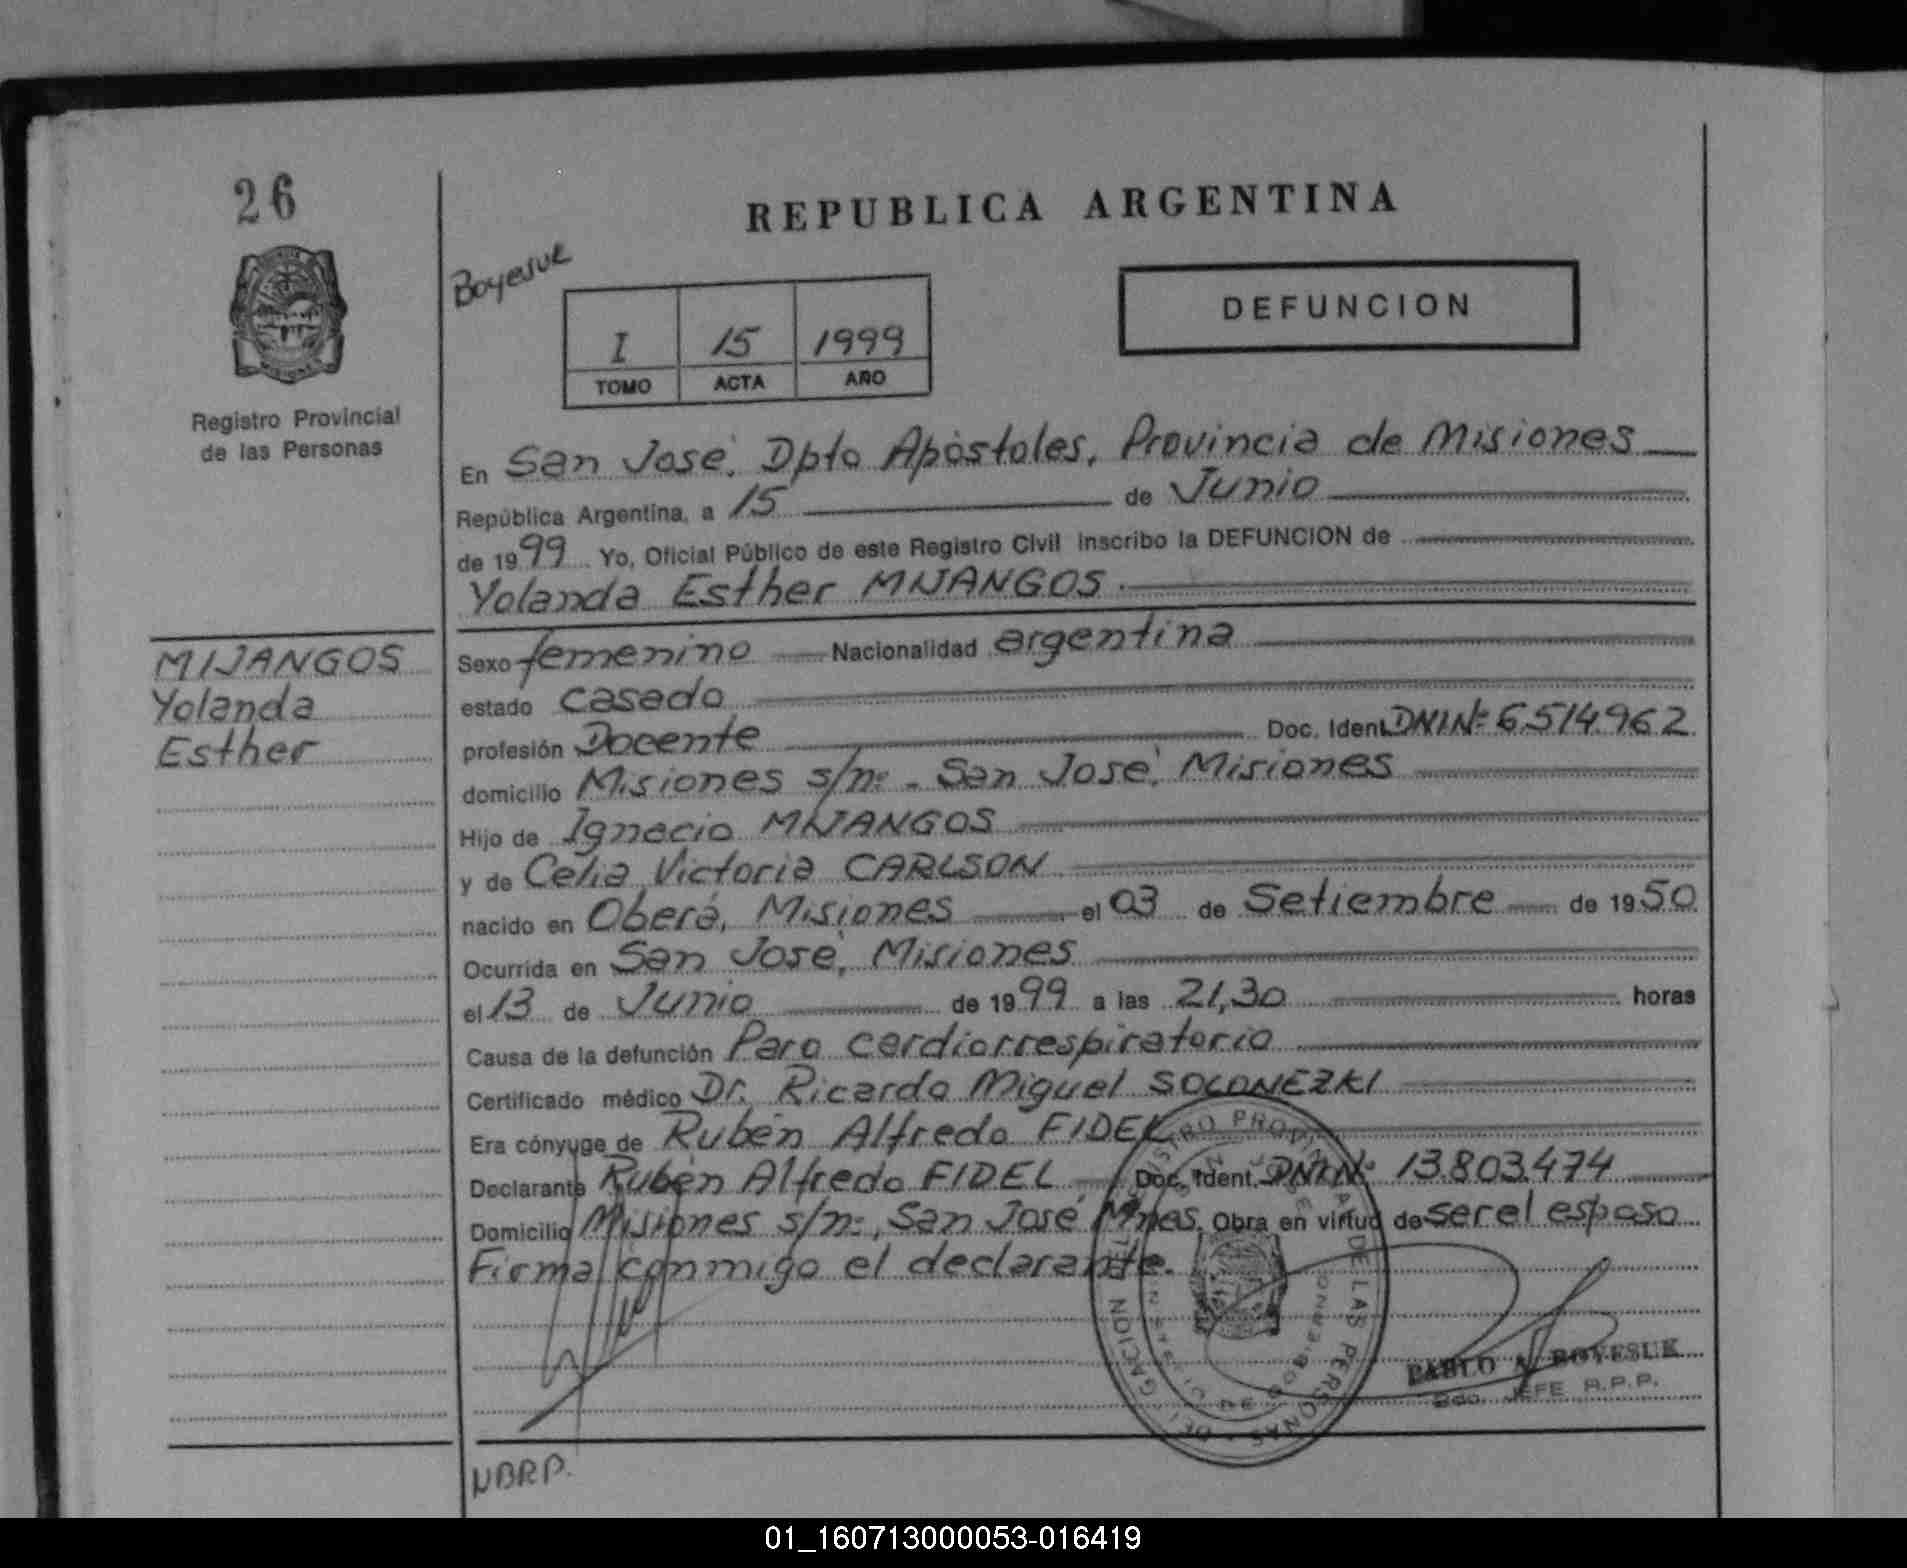 26
REPUBLICA ARGENTINA
Boyesuk
DEFUNCION
I 15 1999
TOMO ACTA AÑO
Registro Provincial
de las Personas
En San José, Dpto Apóstoles, Provincia de Misiones
República Argentina, a 15 de Junio
de 1999 Yo, Oficial Público de este Registro Civil inscribo la DEFUNCION de
Yolanda Esther MIJANGOS
MIJANGOS
Yolanda
Esther
Sexo femenino Nacionalidad argentina
estado casado
profesión Docente Doc. Ident. DNI Nº 6.514.962
domicilio Misiones s/nº - San José, Misiones
Hijo de Ignacio MIJANGOS
y de Celia Victoria CARLSON
nacido en Oberá, Misiones el 03 de Setiembre de 1950
Ocurrida en San José, Misiones
el 13 de Junio de 1999 a las 21,30 horas
Causa de la defunción Paro cardiorrespiratorio
Certificado médico Dr. Ricardo Miguel SOLONEZKI
Era cónyuge de Rubén Alfredo FIDEL
Declarante Rubén Alfredo FIDEL Doc. Ident. DNI Nº 13.803.474
Domicilio Misiones s/nº, San José, Mnes. Obra en virtud de ser el esposo
Firma conmigo el declarante.
PABLO A. BOYESUK
JEFE R.P.P.
NBRP.
01_160713000053-016419